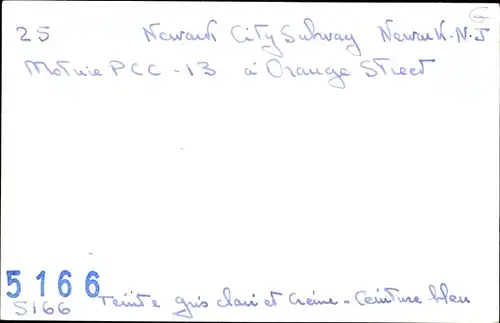 25 Newark City Subway Newark. N. J
Motrice PCC - 13 à Orange Street
5166
5166 Teinte gris clair et Crème - Ceinture bleu